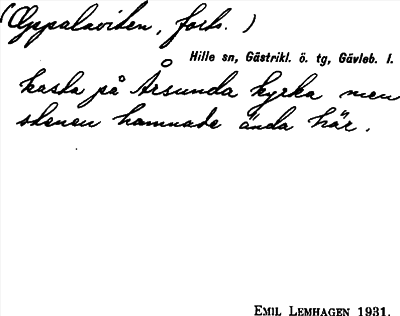 (Oppalaviken, forts.)
Hille sn, Gästrikl. ö. tg, Gävleb. l.
kasta på Årsunda kyrka men
stenen hamnade ända här.
EMIL LEMHAGEN 1931.